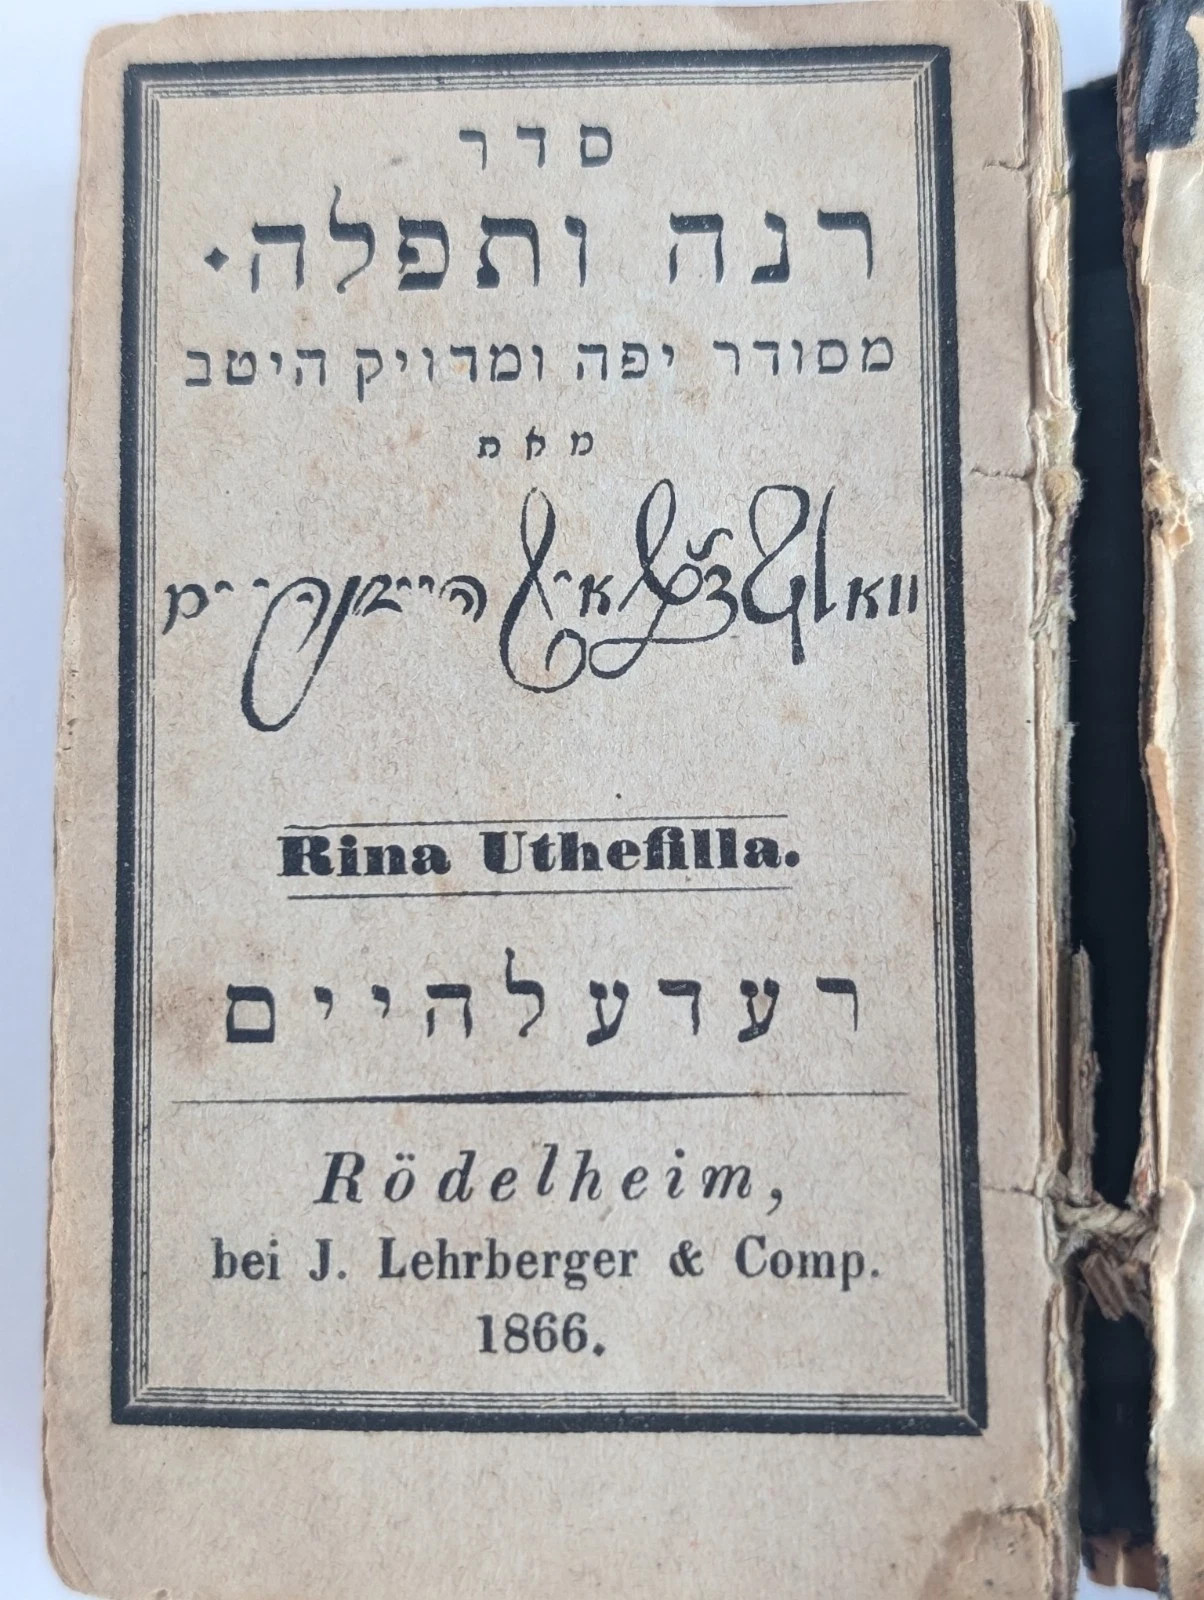 סדר
רנה ותפלה.
מסודר יפה ומדויק היטב
מאת
וואלף היידנהיים
Rina Uthefilla.
רעדעלהיים
Rödelheim,
bei J. Lehrberger & Comp.
1866.